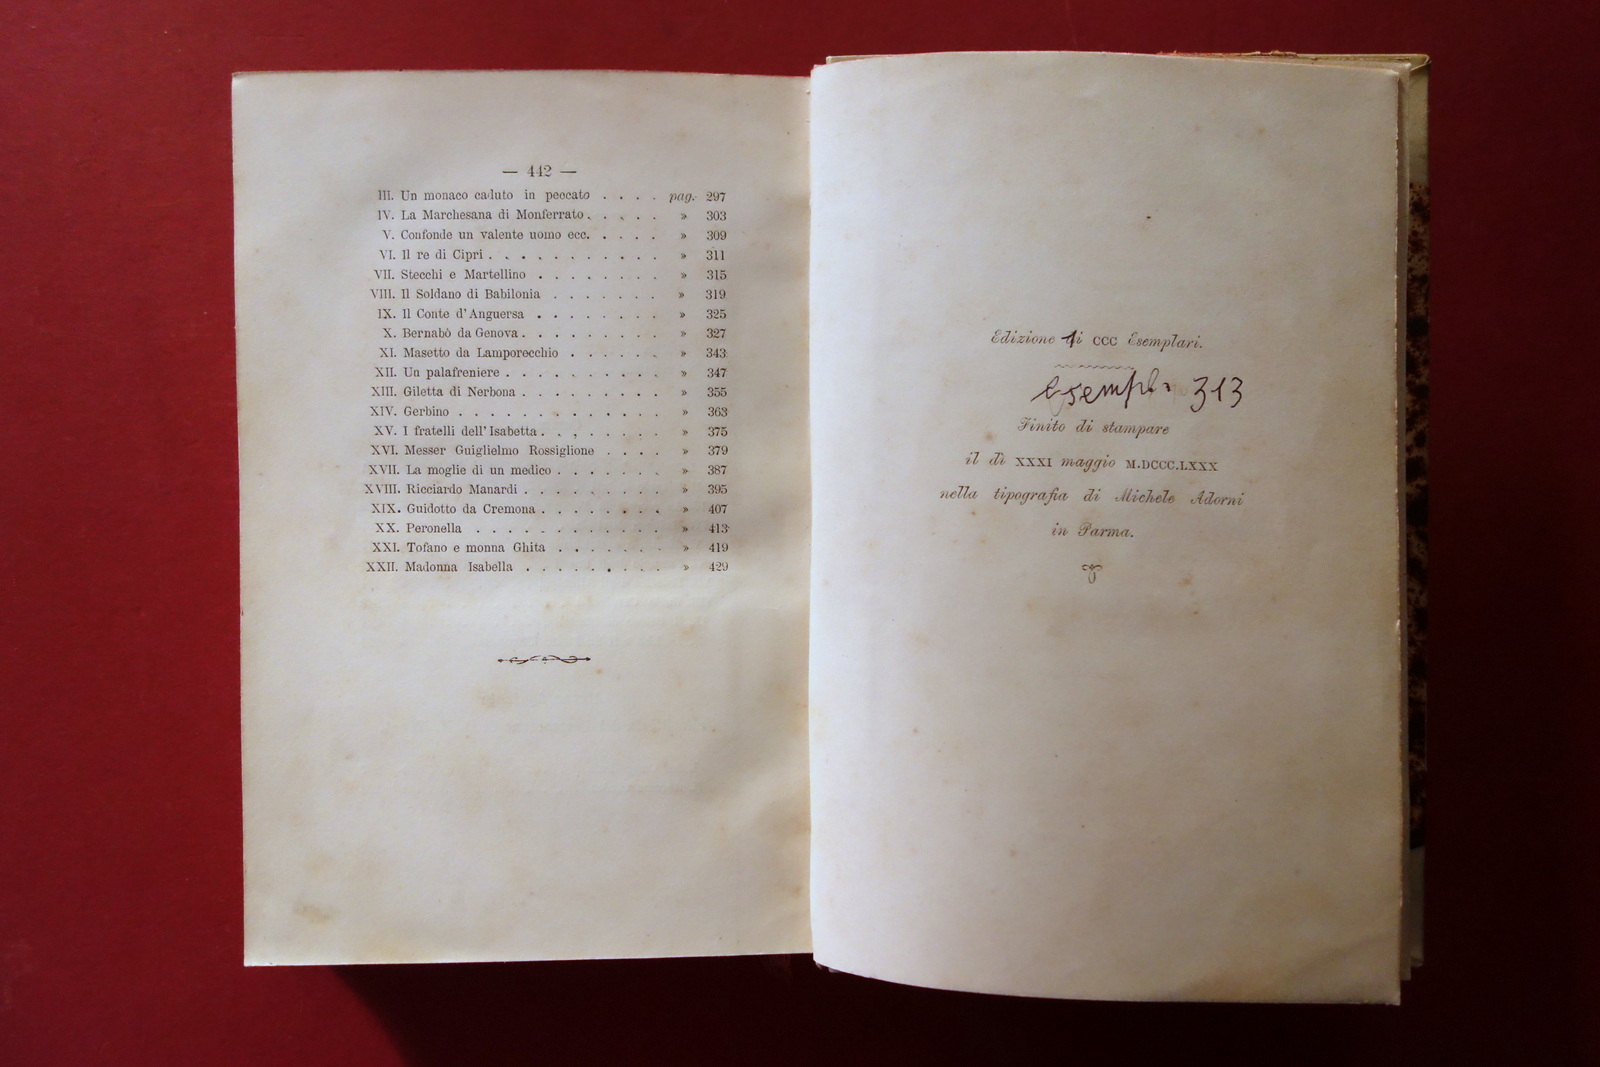 — 442 —
III. Un monaco caduto in peccato . . . . pag. 297
IV. La Marchesana di Monferrato . . . . . » 303
V. Confonde un valente uomo ecc. . . . . » 309
VI. Il re di Cipri . . . . . . . . . . . » 311
VII. Stecchi e Martellino . . . . . . . . » 315
VIII. Il Soldano di Babilonia . . . . . . . » 319
IX. Il Conte d'Anguersa . . . . . . . . » 325
X. Bernabò da Genova . . . . . . . . . » 327
XI. Masetto da Lamporecchio . . . . . . » 343
XII. Un palafreniere . . . . . . . . . . » 347
XIII. Giletta di Nerbona . . . . . . . . . » 355
XIV. Gerbino . . . . . . . . . . . . . » 363
XV. I fratelli dell'Isabetta . . . . . . . . » 375
XVI. Messer Guiglielmo Rossiglione . . . . » 379
XVII. La moglie di un medico . . . . . . . » 387
XVIII. Ricciardo Manardi . . . . . . . . . » 395
XIX. Guidotto da Cremona . . . . . . . . » 407
XX. Peronella . . . . . . . . . . . . » 413
XXI. Tofano e monna Ghita . . . . . . . » 419
XXII. Madonna Isabella . . . . . . . . . » 429
Edizione di CCC Esemplari.
313
Finito di stampare
il dì XXXI maggio M.DCCC.LXXX
nella tipografia di Michele Adorni
in Parma.